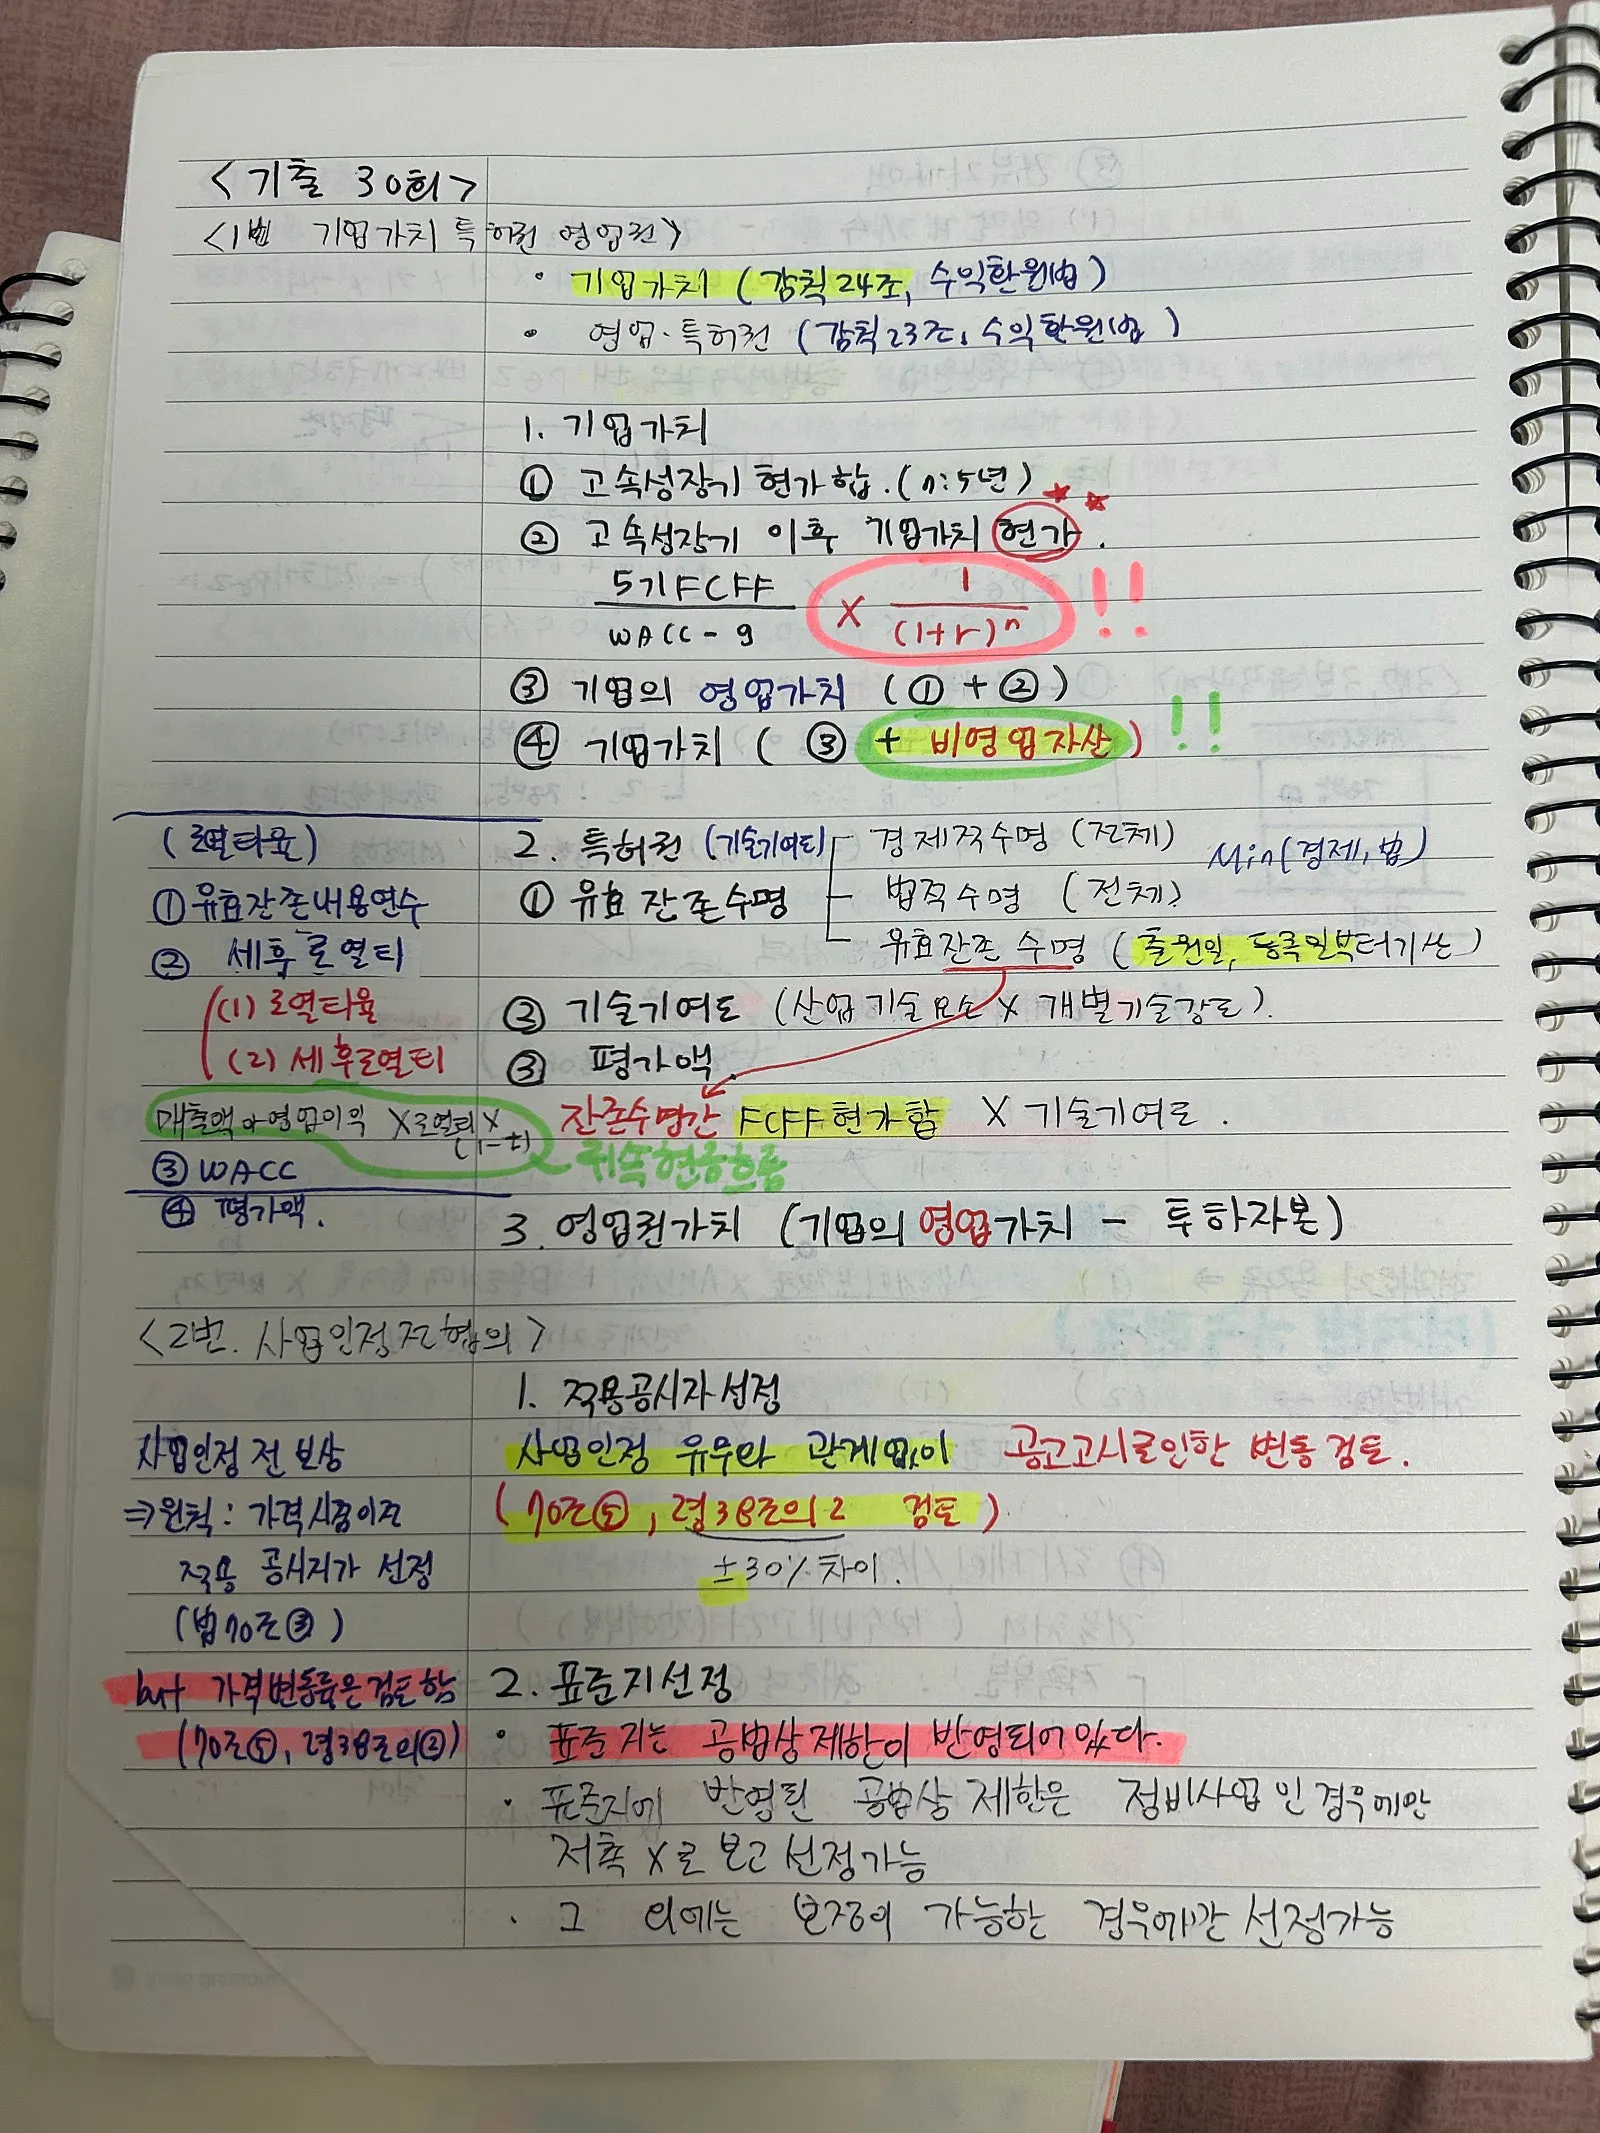 <기출 30회>
<1번 기업가치 특허권 영업권>
· 기업가치 (감칙24조, 수익환원법)
· 영업·특허권 (감칙23조, 수익환원법)
1. 기업가치
① 고속성장기 현가합.(n:5년)
② 고속성장기 이후 기업가치 현가.
5기FCFF / WACC-g × 1 / (1+r)ⁿ !!
③ 기업의 영업가치 (①+②)
④ 기업가치 (③ + 비영업자산) !!
(로열티율)
① 유효잔존내용연수
② 세후로열티
(1) 로열티율
(2) 세후로열티
매출액 or 영업이익 × 로열티 × (1-t)
귀속현금흐름
③ WACC
④ 평가액.
2. 특허권 (기술기여도)
① 유효잔존수명
경제적수명 (전체)
법적수명 (전체)
Min(경제, 법)
유효잔존 수명 (출원일, 등록일부터기산)
② 기술기여도 (산업기술요소 × 개별기술강도).
③ 평가액.
잔존수명간 FCFF현가합 × 기술기여도.
3. 영업권가치 (기업의 영업가치 - 투하자본)
<2번. 사업인정전협의>
1. 적용공시지가선정
사업인정 유무와 관계없이 공고고시로인한 변동 검토.
(70조⑤, 령38조의2 검토)
±30% 차이.
사업인정 전 보상
⇒원칙: 가격시점이전
적용 공시지가 선정
(법70조③)
but 가격변동률은 검토함
(70조⑤, 령38조의②)
2. 표준지선정
· 표준지는 공법상제한이 반영되어있다.
· 표준지에 반영된 공법상 제한은 정비사업인 경우에만
저촉 X로 보고 선정가능
· 그 외에는 보정이 가능한 경우에만 선정가능